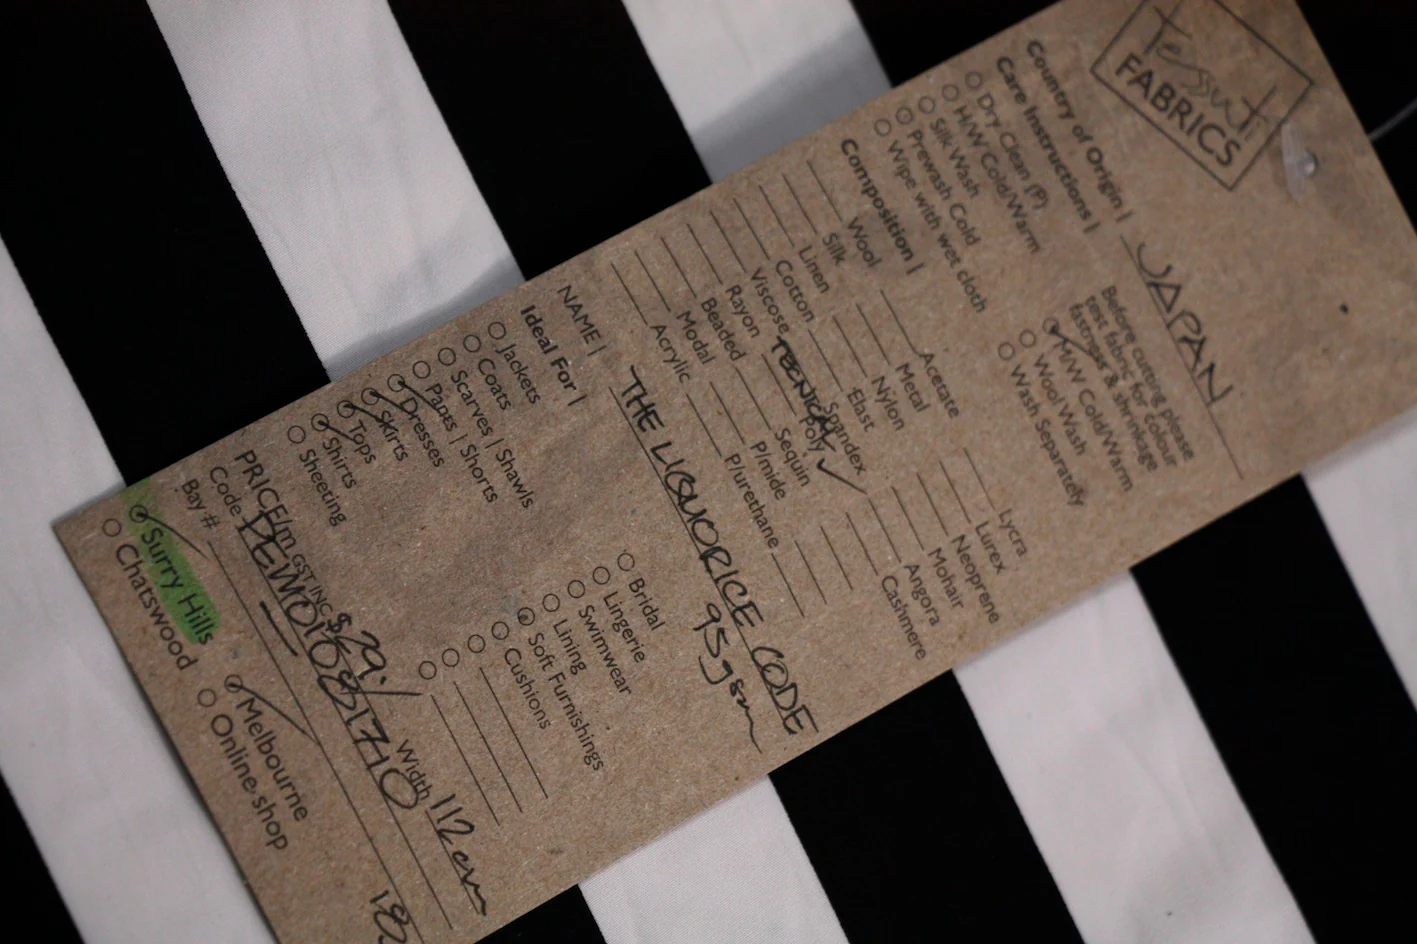 Tessuti
FABRICS
Country of Origin | JAPAN
Care Instructions |
Before cutting please
test fabric for colour
fastness & shrinkage
Dry Clean (P)
H/W Cold/Warm
Silk Wash
Prewash Cold
Wipe with wet cloth
H/W Cold/Warm
Wool Wash
Wash Separately
Composition |
Wool
Silk
Linen
Cotton
Viscose
Rayon
Beaded
Modal
Acrylic
Acetate
Metal
Nylon
Elast
Spandex
TECNICAL Poly
Sequin
P/mide
P/urethane
Lycra
Lurex
Neoprene
Mohair
Angora
Cashmere
NAME | THE LIQUORICE CODE
95gsm
Ideal For |
Jackets
Coats
Scarves | Shawls
Pants | Shorts
Dresses
Skirts
Tops
Shirts
Sheeting
Bridal
Lingerie
Swimwear
Lining
Soft Furnishings
Cushions
PRICE/m GST INC $29/ Width 112cm
Code
Bay #
Surry Hills
Chatswood
Melbourne
Online-shop